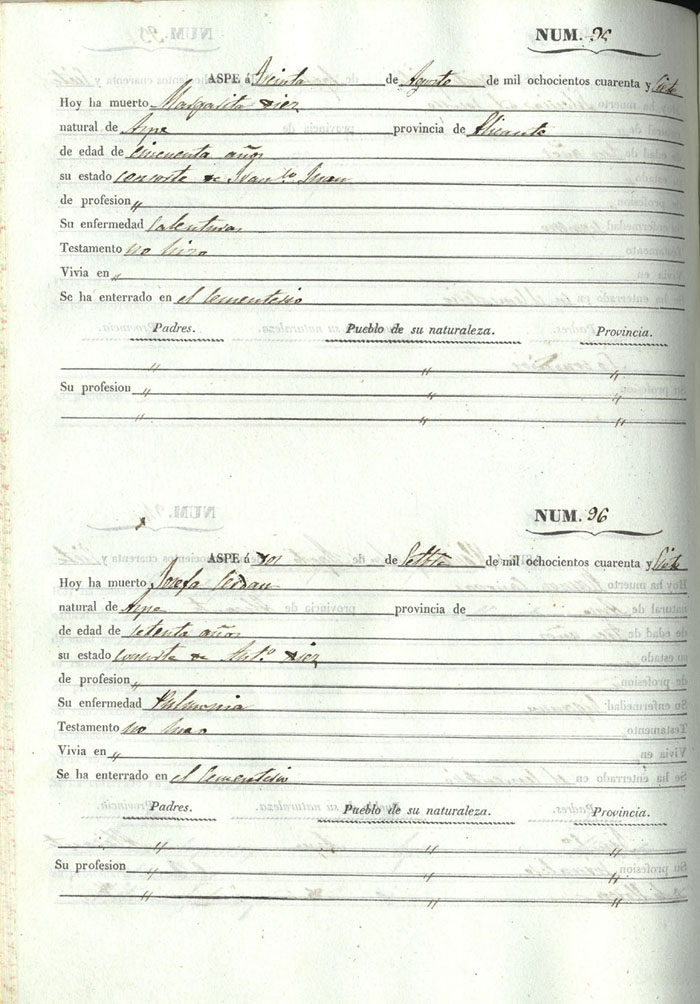 NUM. 95
ASPE á Treinta de Agosto de mil ochocientos cuarenta y Siete
Hoy ha muerto Margarita Diez
natural de Aspe provincia de Alicante
de edad de Cincuenta años
su estado consorte de Juan
de profesion "
Su enfermedad Calenturas
Testamento no hizo
Vivia en "
Se ha enterrado en el Cementerio
Padres. Pueblo de su naturaleza. Provincia.
" " "
Su profesion " " "
" " "
NUM. 96
ASPE á dos de Setbre de mil ochocientos cuarenta y Siete
Hoy ha muerto Josefa
natural de Aspe provincia de
de edad de setenta años
su estado consorte de Anto. Diez
de profesion "
Su enfermedad Pulmonia
Testamento no hizo
Vivia en "
Se ha enterrado en el Cementerio
Padres. Pueblo de su naturaleza. Provincia.
" " "
Su profesion " " "
" " "